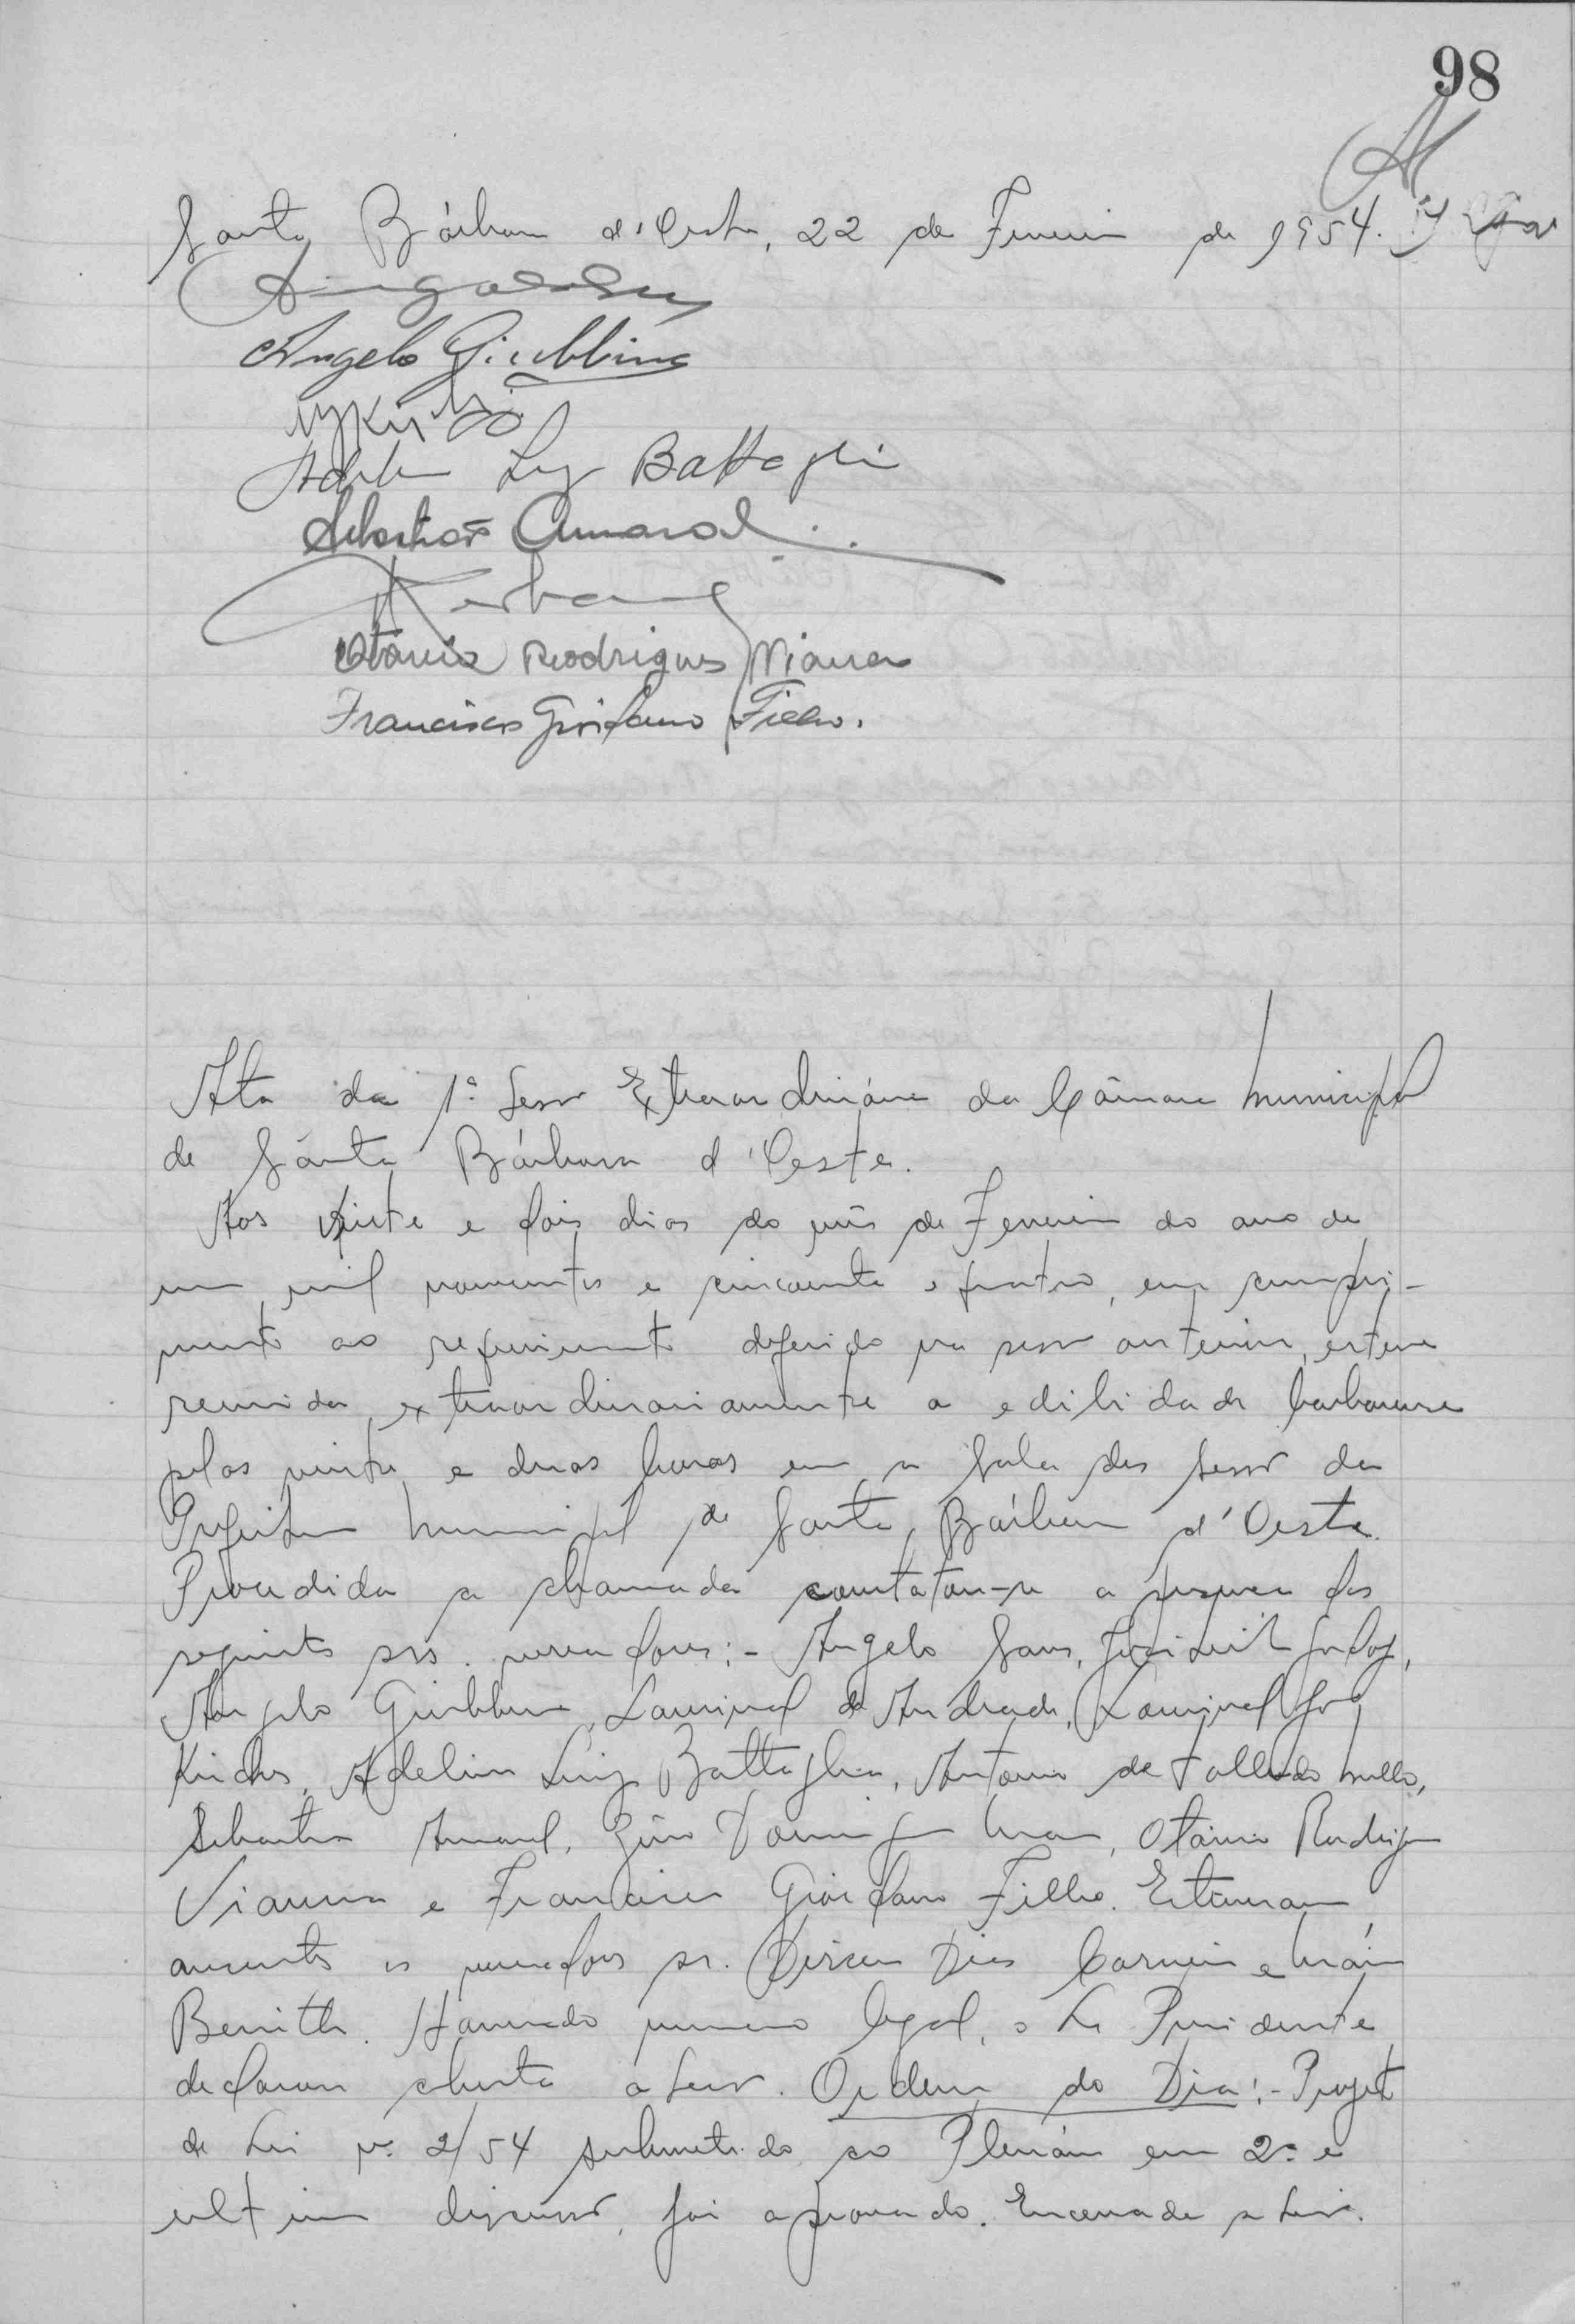 98
Santa Bárbara d'Oeste, 22 de Fevereiro de 1954.
Angelo Giubbina
Adelino Luiz Battaglia
Sebastião Amaral
Otavio Rodrigues Vianna
Francisco Giordano Filho.
Ata da 1ª Sessão Extraordinária da Câmara Municipal
de Santa Bárbara d'Oeste.
Aos vinte e dois dias do mês de Fevereiro do ano de
um mil novecentos e cincoenta e quatro, em cumpri-
mento ao requerimento deferido na sessão anterior, esteve
reunida extraordinariamente a edilidade barbarense
pelas vinte e duas horas em a Sala das Sessões da
Prefeitura Municipal de Santa Bárbara d'Oeste.
Procedida a chamada constatou-se a presença dos
seguintes srs. vereadores:- Angelo Sans, Godoy,
Angelo Giubbina, Lourival de Andrade, Lourival
Adelino Luiz Battaglia, Antonio de Tolledo Mello,
Sebastião Amaral, Otavio Rodrigues
Vianna e Francisco Giordano Filho. Estiveram
ausentes os vereadores sr. Dirceu Dias Carneiro e Mário
Havendo numero legal, o Sr Presidente
declarou aberta a Sessão. Ordem do Dia:- Projeto
de Lei nº 2/54 submetido ao Plenário em 2ª e
ultima discussão, foi aprovado. Encerrada a Sessão.